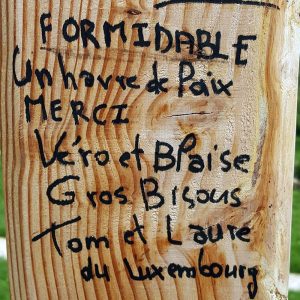 FORMIDABLE
Un havre de Paix
MERCI
Véro et Blaise
Gros Bisous
Tom et Laure
du Luxembourg